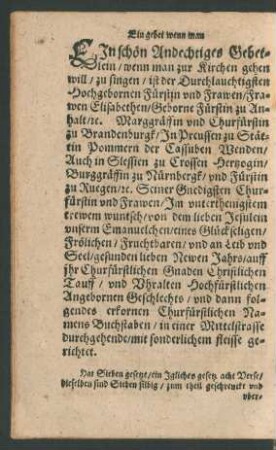 Ein gebet wenn man
EIn schön Andechtiges Gebet-
lein/wenn man zur Kirchen gehen
will/zu singen/ist der Durchlauchtigsten
Hochgebornen Fürstin und Frawen/Fra-
wen Elisabethen/Geborne Fürstin zu An-
halt/ꝛc. Marggräffin vnd Churfürstin
zu Brandenburgk/In Preussen zu Stät-
tin Pommern der Cassuben Wenden/
Auch in Slessien zu Crossen Hertzogin/
Burggräffin zu Nürnbergk/ vnd Fürstin
zu Ruegen/ꝛc. Seiner Gnedigsten Chur-
fürstin vnd Frawen/Im vnterthenigstem
trewem wuntsch/von dem lieben Jesulein
vnserm Emanuelchen/eines Glückseligen/
Frölichen/ Fruchtbaren/vnd an Leib vnd
Seel/gesunden lieben Newen Jahrs/auff
jhr Churfürstlichen Gnaden Christlichen
Tauff/ vnd Vhralten Hochfürstlichen
Angebornen Geschlechts/vnd dann fol-
gendes erkornen Churfürstlichen Na-
mens Buchstaben/in einer Mittelstrasse
durchgehende/mit sonderlichem fleisse ge-
richtet.
Hat Sieben gesetze/ein Jgliches gesetz acht Verse/
dieselben sind Sieben silbig/zum theil geschrenckt vnd
vber-